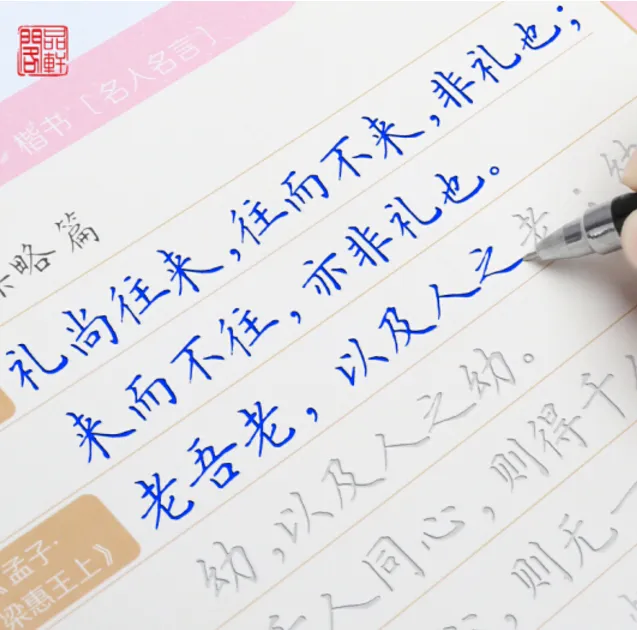 品軒閣
楷书 [名人名言]
略篇
礼尚往来，往而不来，非礼也；
来而不往，亦非礼也。
老吾老，以及人之老；幼
幼，以及人之幼。
《孟子·
梁惠王上》
人同心，则得千
则无一